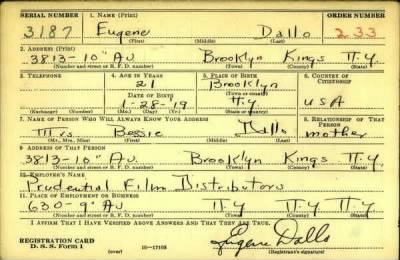 SERIAL NUMBER 1. NAME (Print) ORDER NUMBER
3187 Eugene Dallo 233
(First) (Middle) (Last)
2. ADDRESS (Print)
3813-10" Av. Brooklyn Kings N.Y.
(Number and street or R. F. D. number) (Town) (County) (State)
3. TELEPHONE 4. AGE IN YEARS 5. PLACE OF BIRTH 6. COUNTRY OF CITIZENSHIP
21 Brooklyn
DATE OF BIRTH (Town or county)
1-28-'19 N.y. USA
(Exchange) (Number) (Mo.) (Day) (Yr.) (State or country)
7. NAME OF PERSON WHO WILL ALWAYS KNOW YOUR ADDRESS 8. RELATIONSHIP OF THAT PERSON
Mrs Bessie Dallo mother
(Mr., Mrs., Miss) (First) (Middle) (Last)
9. ADDRESS OF THAT PERSON
3813-10" Av. Brooklyn Kings N.Y.
(Number and street or R. F. D. number) (Town) (County) (State)
10. EMPLOYER'S NAME
Prudential Film Distributors
11. PLACE OF EMPLOYMENT OR BUSINESS
630-9" Av. N.Y N.Y N.Y
(Number and street or R. F. D. number) (Town) (County) (State)
I AFFIRM THAT I HAVE VERIFIED ABOVE ANSWERS AND THAT THEY ARE TRUE.
REGISTRATION CARD
D. S. S. Form 1 (over) 16-17105 Eugene Dallo
(Registrant's signature)